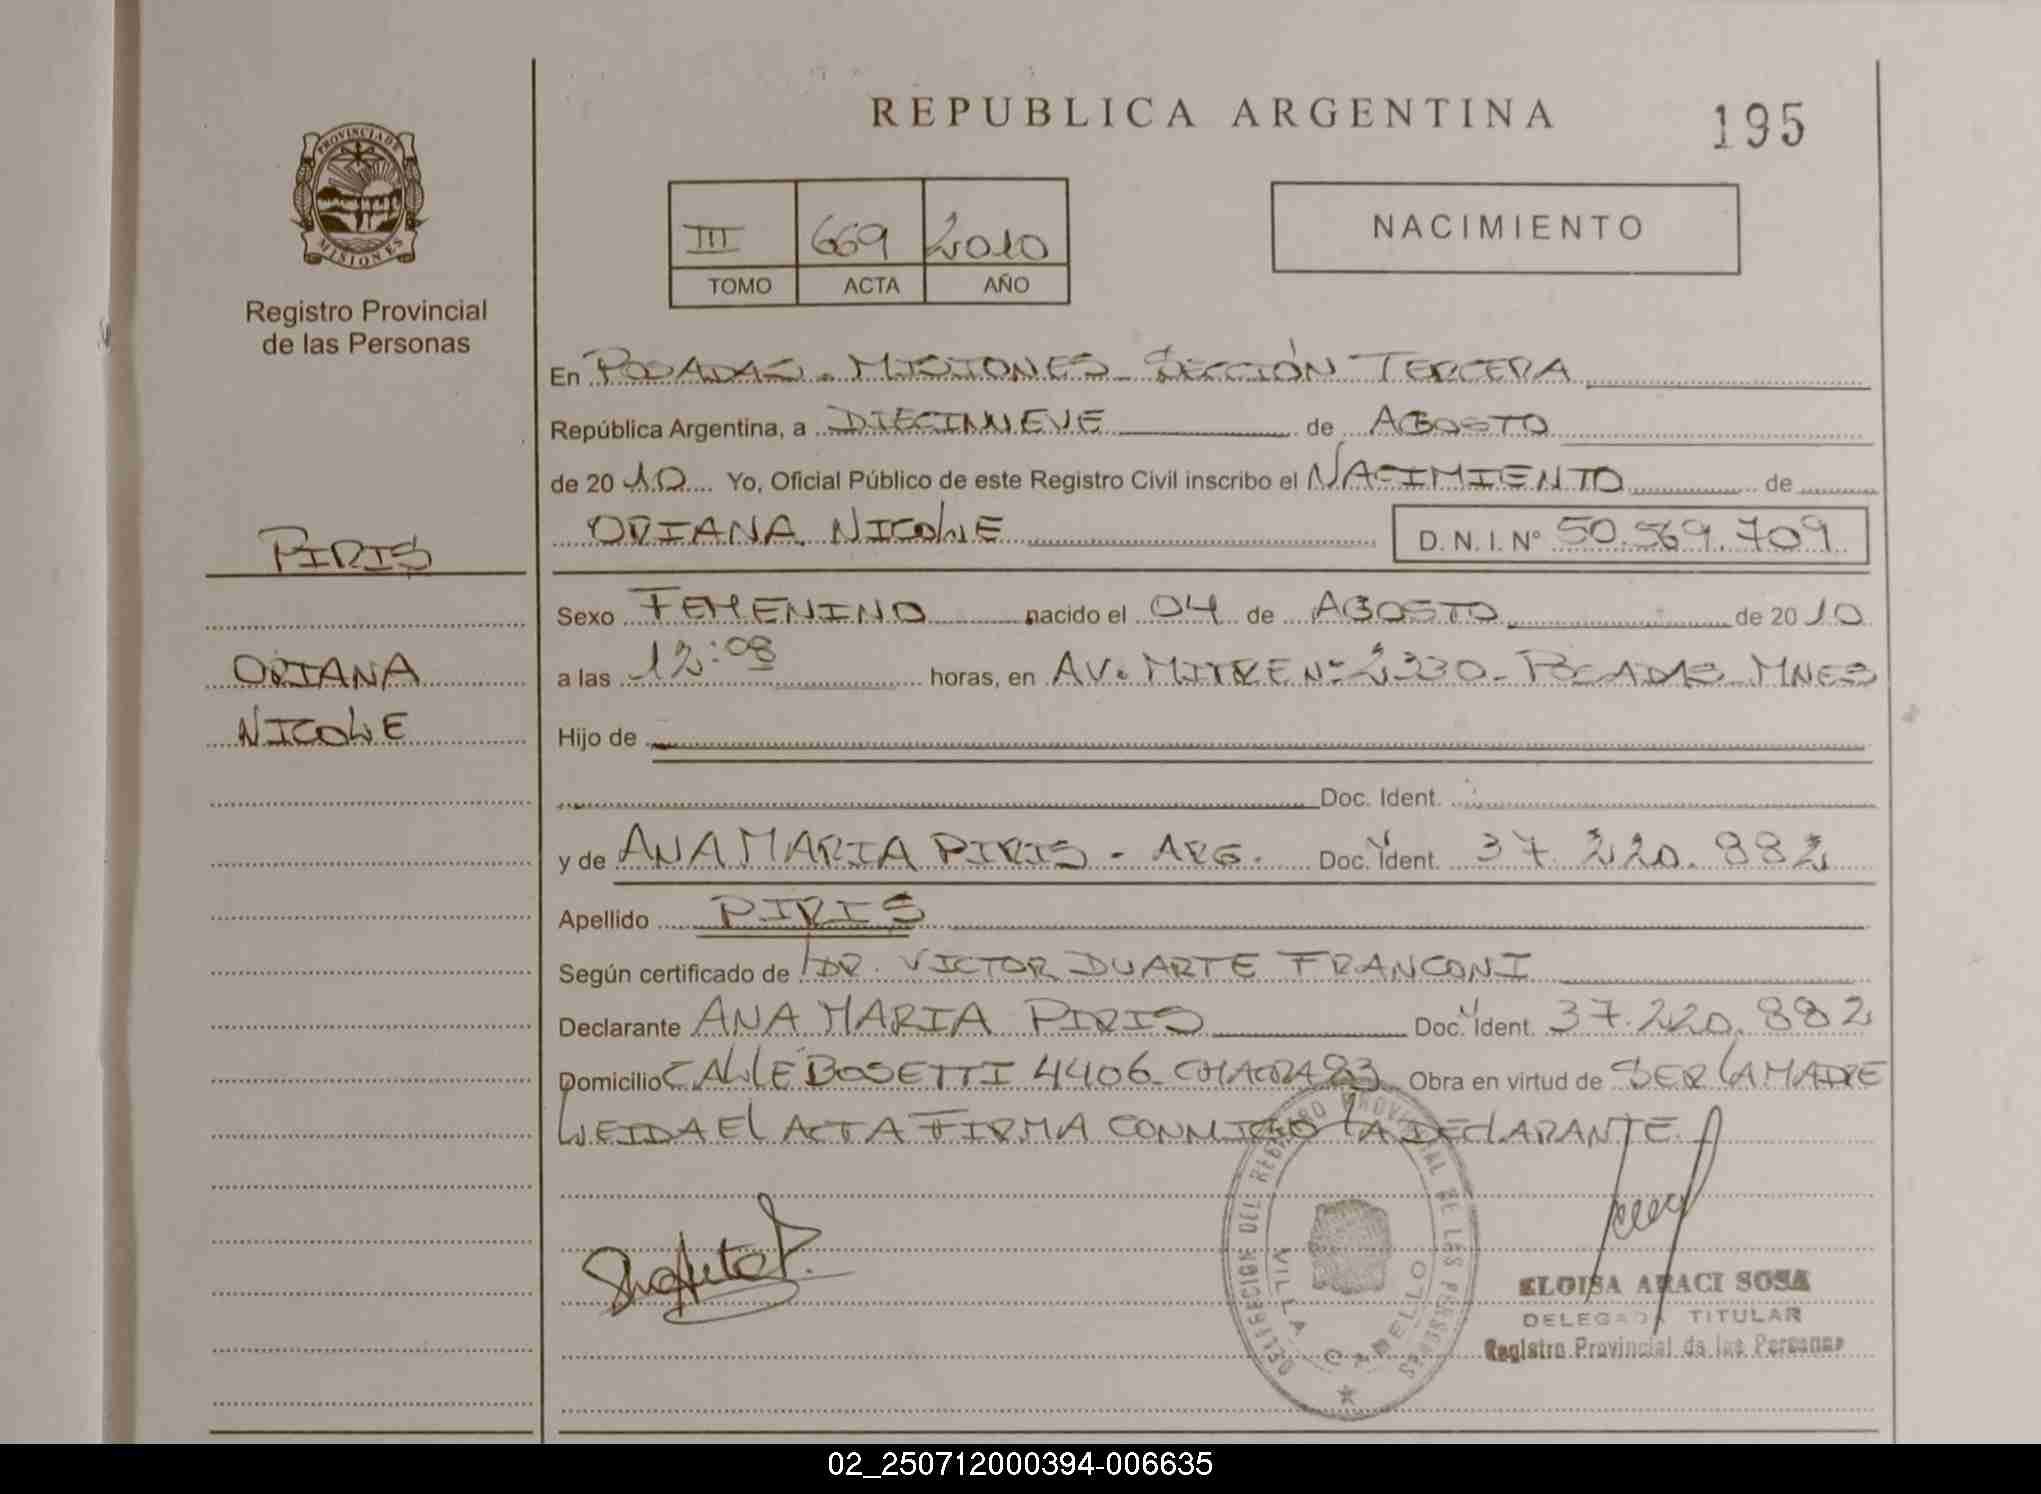 REPUBLICA ARGENTINA
195
PROVINCIA DE
MISIONES
Registro Provincial
de las Personas
III 669 2010
TOMO ACTA AÑO
NACIMIENTO
En POSADAS - MISIONES - SECCIÓN TERCERA
República Argentina, a DIECINUEVE de AGOSTO
de 2010 Yo, Oficial Público de este Registro Civil inscribo el NACIMIENTO de
ORIANA NICOLLE
D. N. I. Nº 50.569.709
PIRIS
ORIANA
NICOLLE
Sexo FEMENINO nacido el 04 de AGOSTO de 2010
a las 12:08 horas, en AV. MITRE Nº 2330 - POSADAS - MNES
Hijo de
Doc. Ident.
y de ANA MARIA PIRIS - ARG. Doc. Ident. 37.220.882
Apellido PIRIS
Según certificado de DR. VICTOR DUARTE FRANCONI
Declarante ANA MARIA PIRIS Doc. Ident. 37.220.882
Domicilio CALLE BOSETTI 4406 - CHACRA 83 Obra en virtud de SER LA MADRE
LEIDA El ACTA FIRMA CONMIGO LA DEClARANTE
DELEGACION DEL REGISTRO PROVINCIAL DE LAS PERSONAS
VILLA CABELLO
ELOISA ARACI SOSA
DELEGADA TITULAR
Registro Provincial de las Personas
02_250712000394-006635